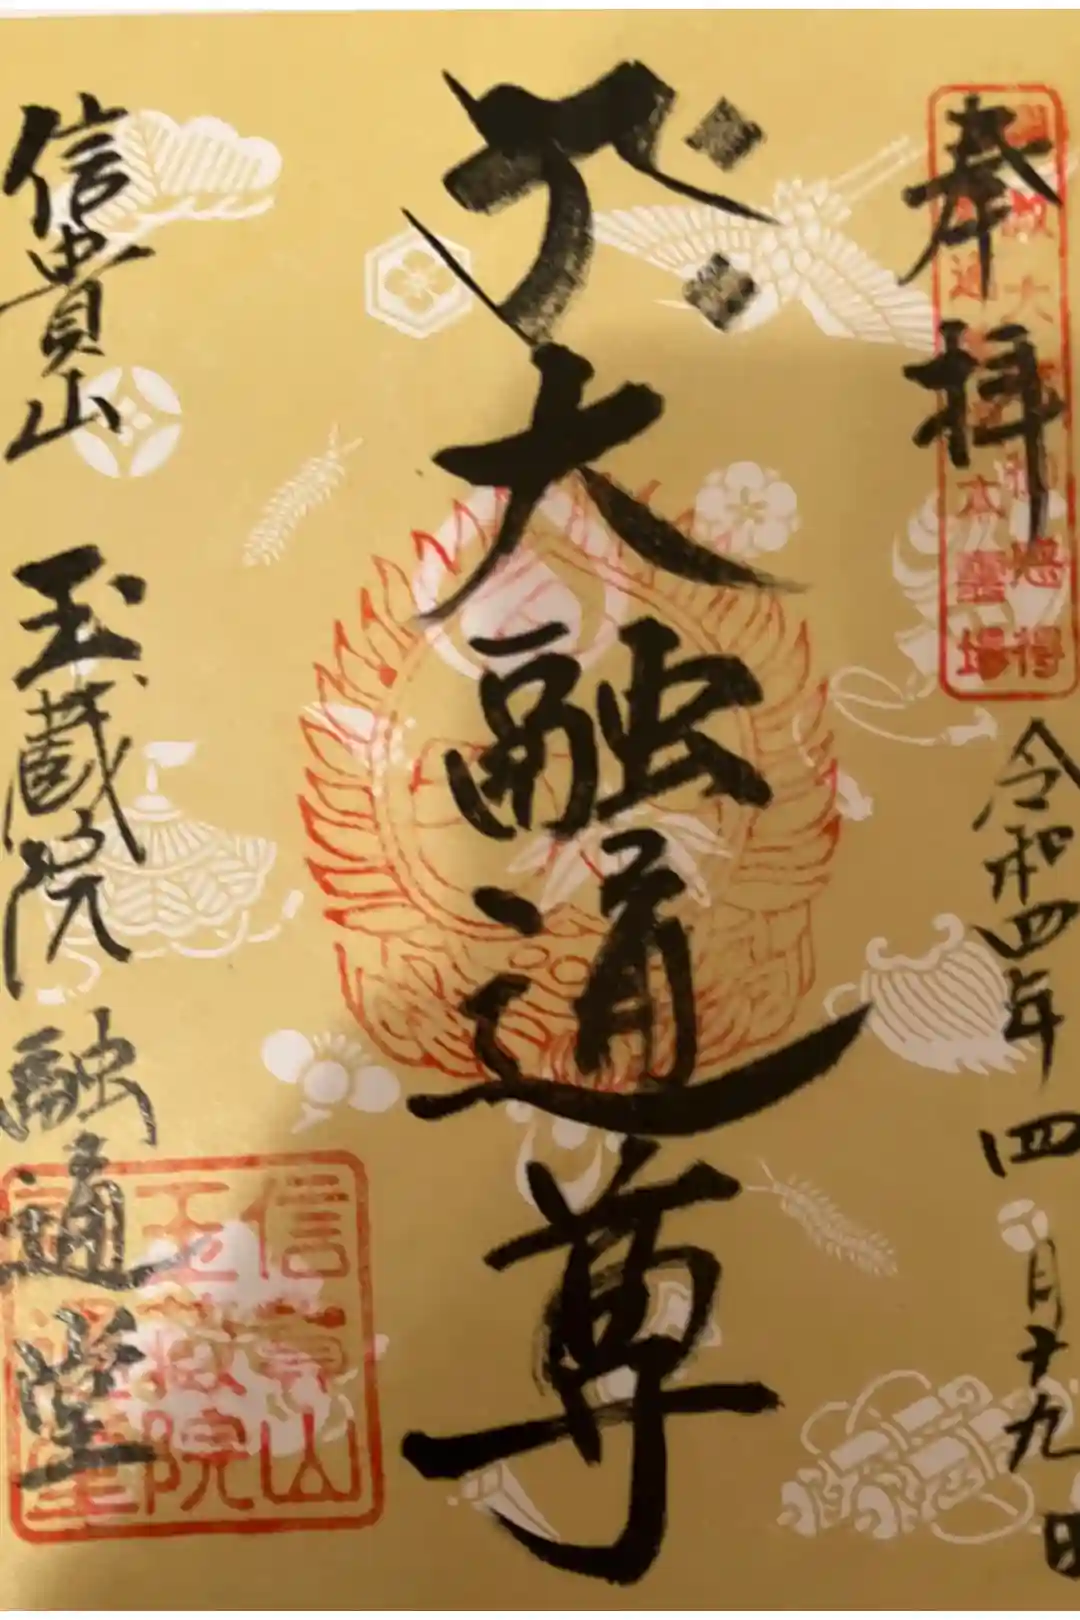 奉拝
令和四年四月十九日
大融通尊
信貴山
玉蔵院 融通堂
信貴山
玉蔵院
融通堂